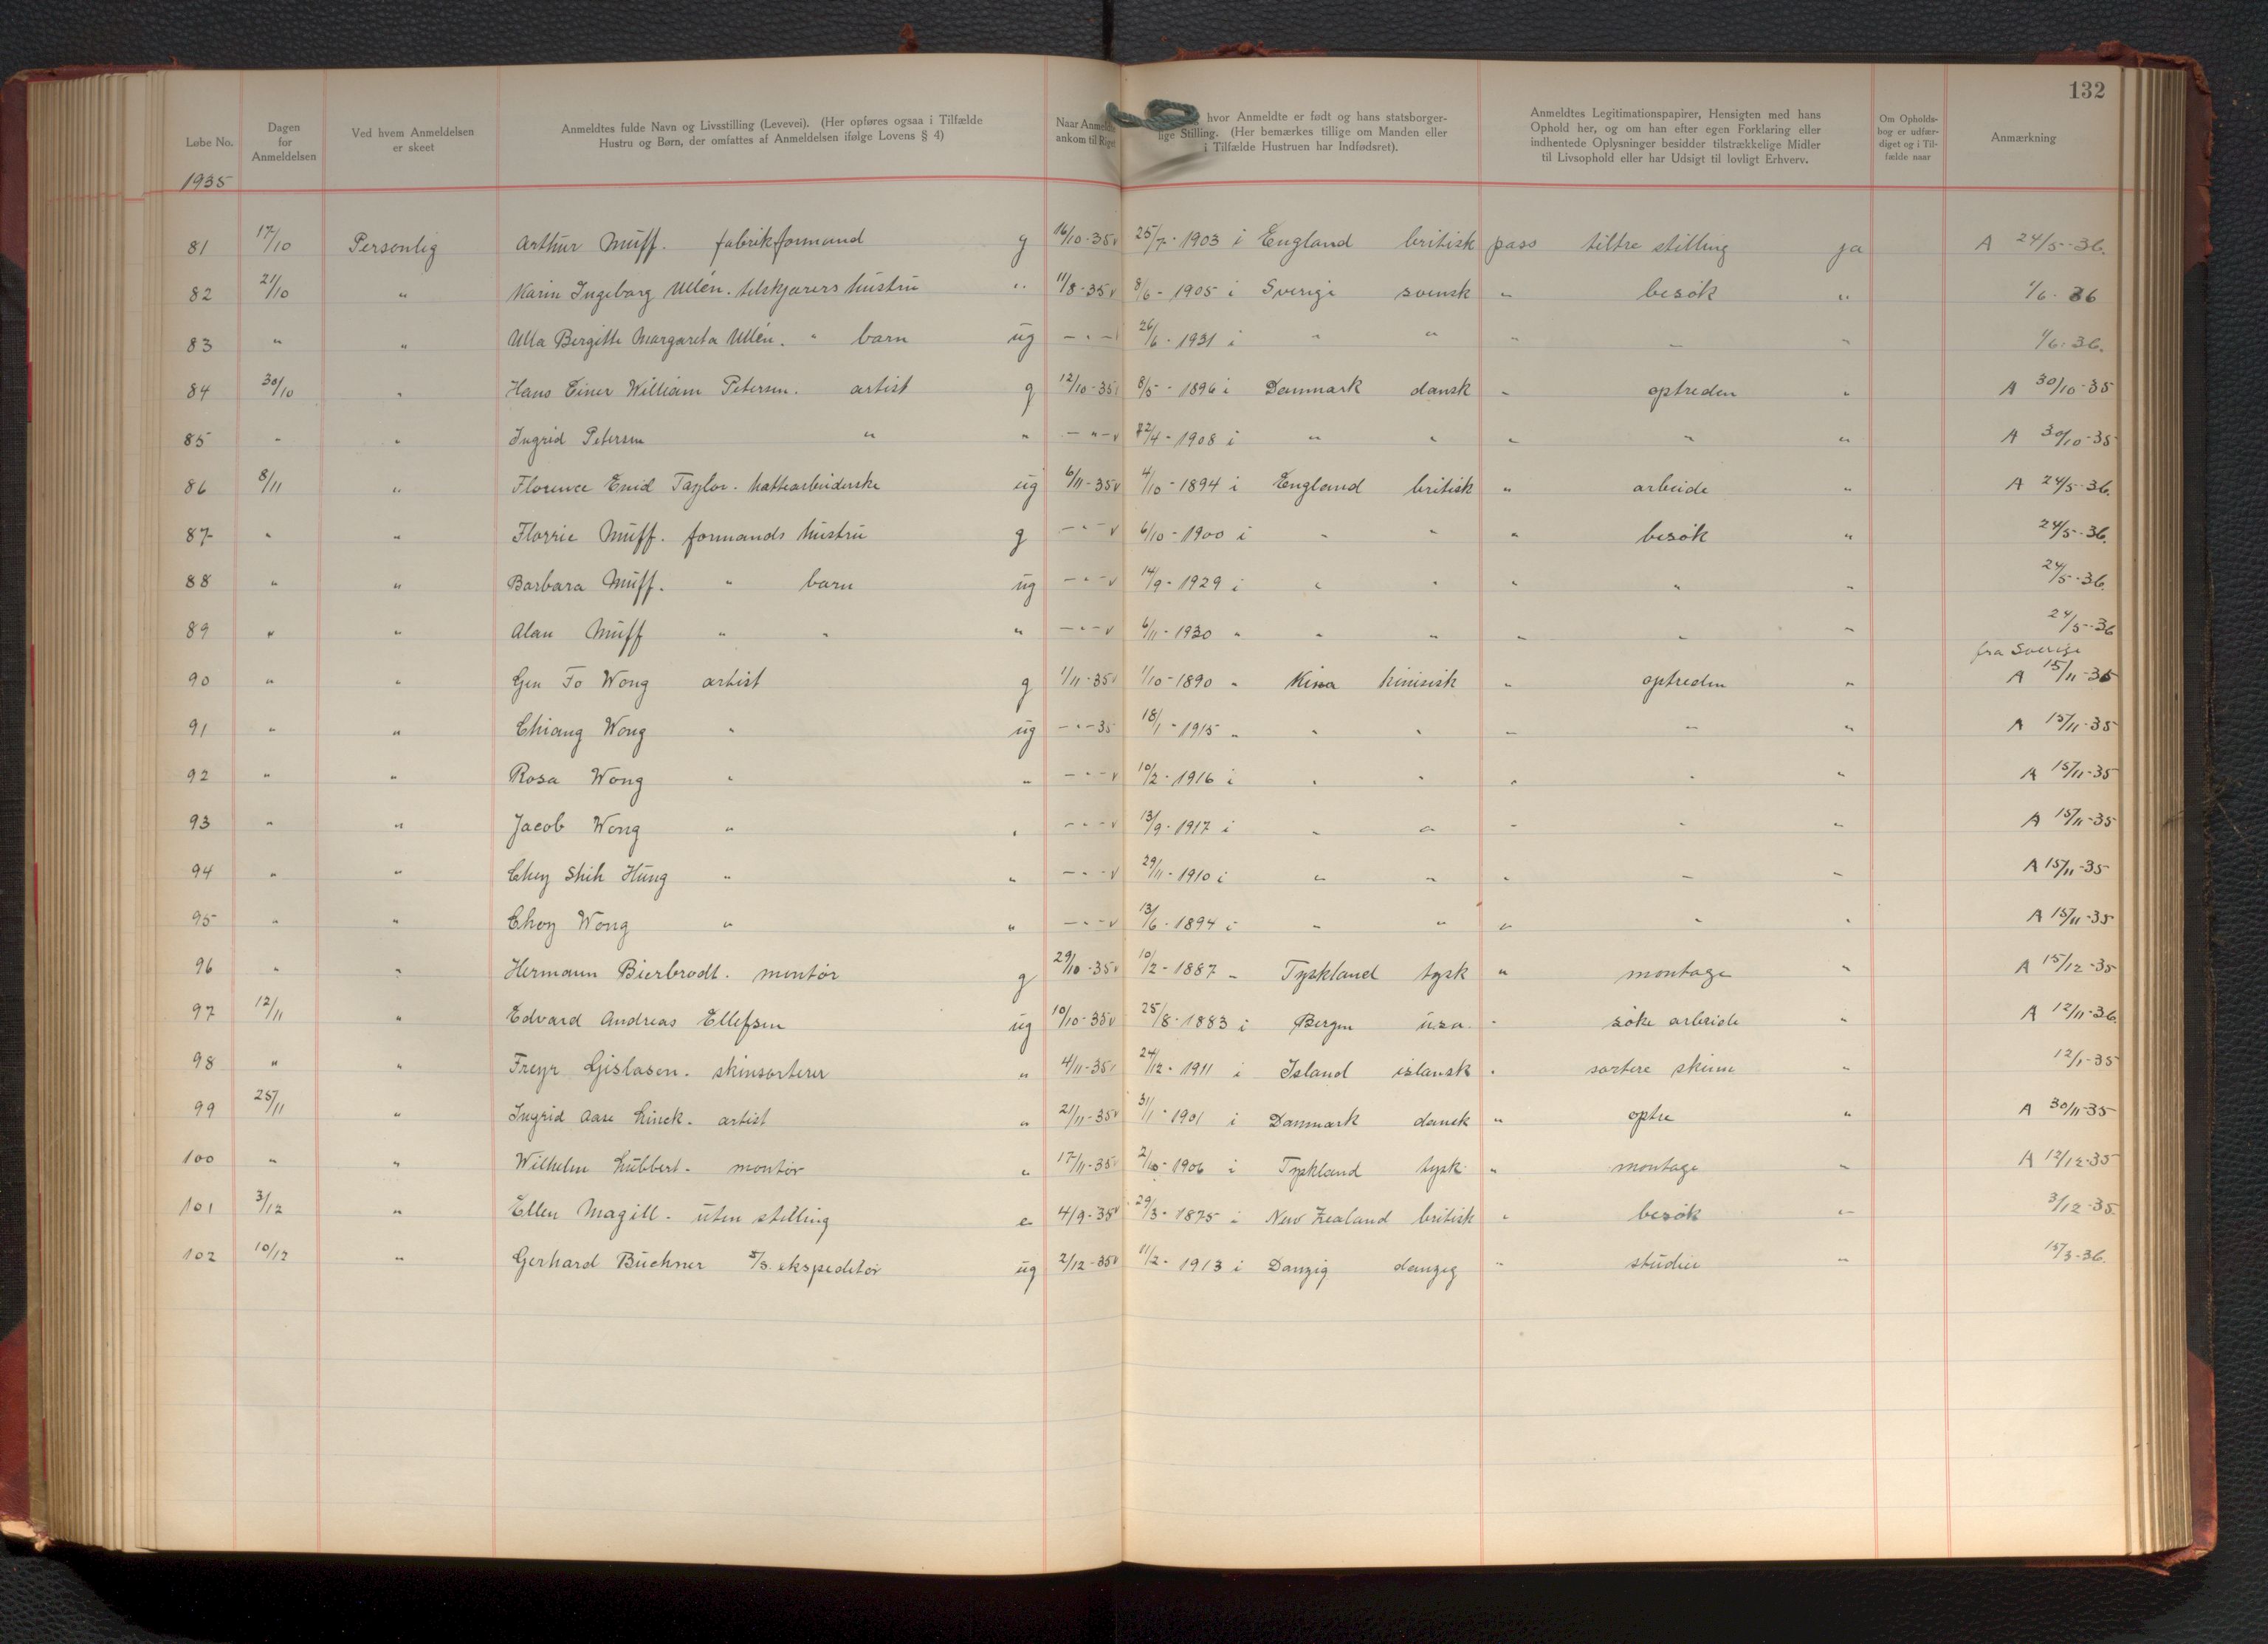 132
Løbe No.
Dagen for Anmeldelsen
Ved hvem Anmeldelsen er skeet
Anmeldtes fulde Navn og Livsstilling (Levevei). (Her opføres ogsaa i Tilfælde Hustru og Børn, der omfattes af Anmeldelsen ifølge Lovens § 4)
Naar Anmeldte ankom til Riget
hvor Anmeldte er født og hans statsborgerlige Stilling. (Her bemærkes tillige om Manden eller i Tilfælde Hustruen har Indfødsret).
Anmeldtes Legitimationspapirer, Hensigten med hans Ophold her, og om han efter egen Forklaring eller indhentede Oplysninger besidder tilstrækkelige Midler til Livsophold eller har Udsigt til lovligt Erhverv.
Om Opholdsbog er udfærdiget og i Tilfælde naar
Anmærkning
1935
81 17/10 Personlig Arthur Muff. fabrikformand g 16/10-35 v 25/7-1903 i England britisk pass tiltre stilling ja A 24/5-36.
82 21/10 " Karin Ingeborg Ullén. tilskjærers hustru " 11/8-35 v 8/6-1905 i Sverige svensk " besøk " 1/6-36
83 " " Ulla Bergitte Margareta Ullén. " barn ug - " - 26/6-1931 i " " " " " 1/6-36.
84 30/10 " Hans Einer William Petersen. artist g 12/10-35 8/5-1896 i Danmark dansk " optreden " A 30/10-35
85 " " Ingrid Petersen " " - " - v 22/4-1908 i " " " " " A 30/10-35
86 8/11 " Florence Enid Taylor. hattearbeiderske ug 6/11-35 v 4/10-1894 i England britisk " arbeide " A 24/5-36.
87 " " Florrie Muff. formands hustru g - " - v 6/10-1900 i " " " besøk " 24/5-36.
88 " " Barbara Muff. " barn ug - " - v 14/9-1929 i " " " " " 24/5-36.
89 " " Alan Muff " " " - " - v 6/11-1930 " " " " " " 24/5-36
90 " " Gen Fo Wong artist g 1/11-35 1/10-1890 " Kina kinisisk " optreden " fra Sverige A 15/11-35
91 " " Chiang Wong " ug - " - 35 18/1-1915 " " " " " " A 15/11-35
92 " " Rosa Wong " " - " - v 10/2-1916 i " " " " " A 15/11-35
93 " " Jacob Wong " " - " - v 13/9-1917 i " " " " " A 15/11-35
94 " " Chey Shih Hung " " - " - v 29/11-1910 i " " " " " A 15/11-35
95 " " Choy Wong " " - " - v 13/6-1894 i " " " " " A 15/11-35
96 " " Hermann Bierbrodt. montør g 29/10-35 v 10/2-1887 " Tyskland tysk " montage " A 15/12-35
97 12/11 " Edvard Andreas Ellefsen ug 10/10-35 v 25/8-1883 i Bergen u.s.a. " søke arbeide " A 12/11-36.
98 " " Freyr Gislason. skinsorterer " 4/11-35 24/12-1911 i Island islansk " sortere skinn " 12/1-35
99 25/11 " Ingrid Aase Linck. artist " 21/11-35 v 31/1-1901 i Danmark dansk " optre " A 30/11-35
100 " " Wilhelm Lübbert. montør " 17/11-35 2/10-1906 i Tyskland tysk " montage " A 12/12-35
101 3/12 " Ellen Magill. uten stilling e 4/9-35 v 29/3-1875 i New Zealand britisk " besøk " 3/12-35.
102 10/12 " Gerhard Büchner ekspeditør ug 2/12-35 v 11/2-1913 i Danzig danzig " studier " 15/3-36.